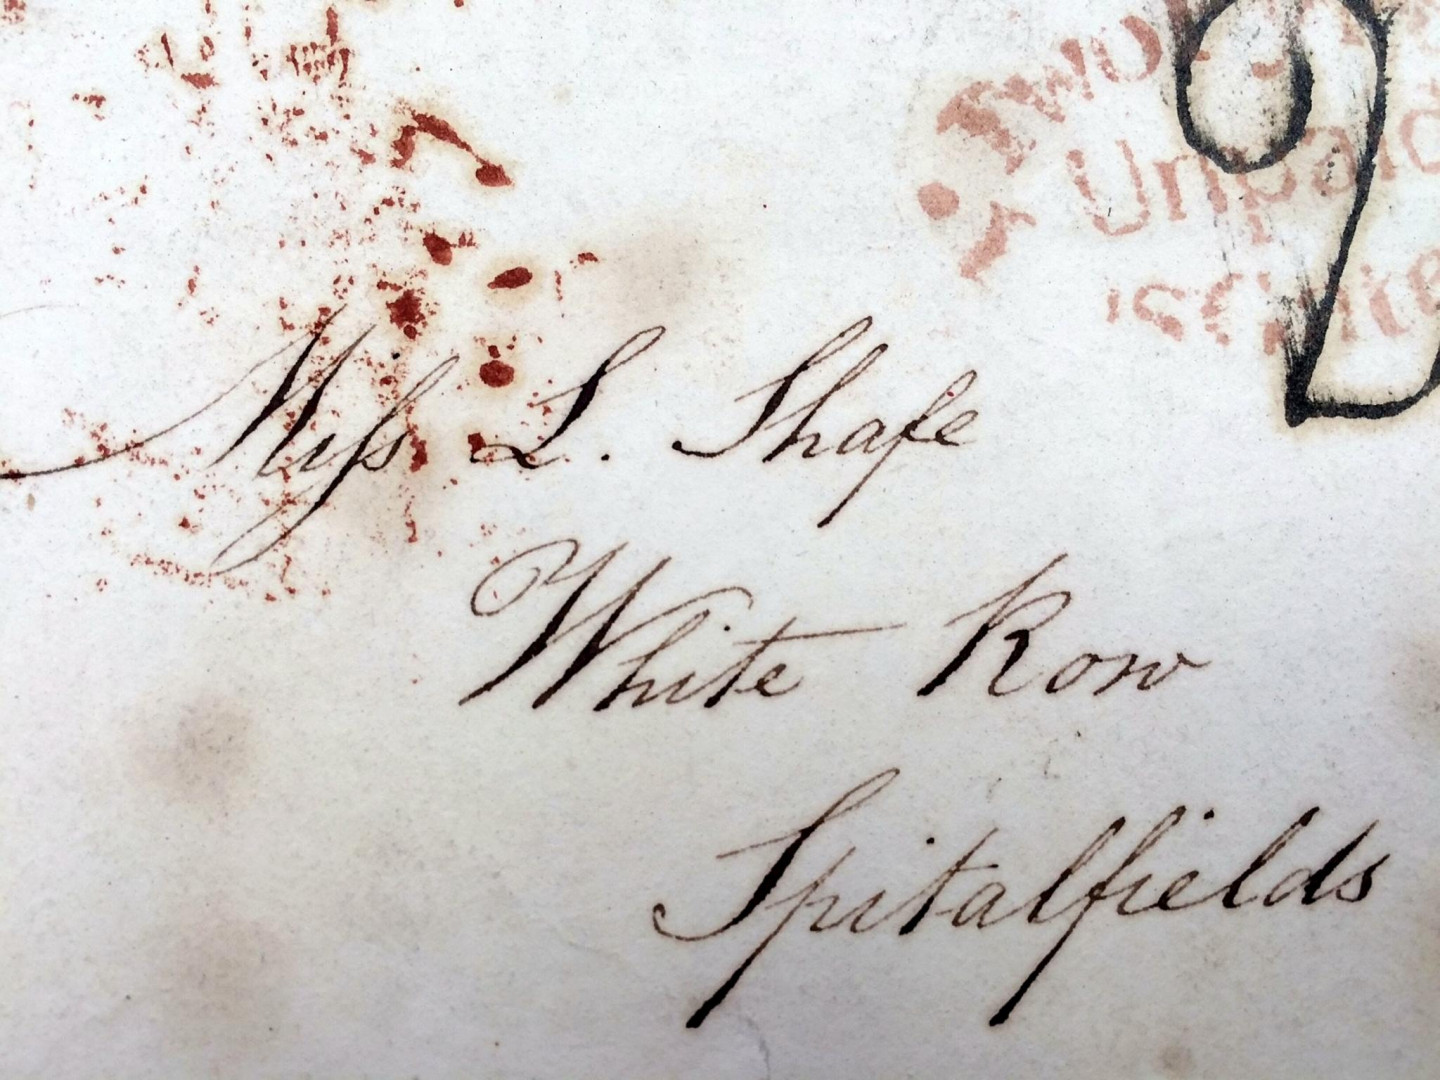 Two
Unpaid
2
Miſs L. Shafe
White Row
Spitalfields